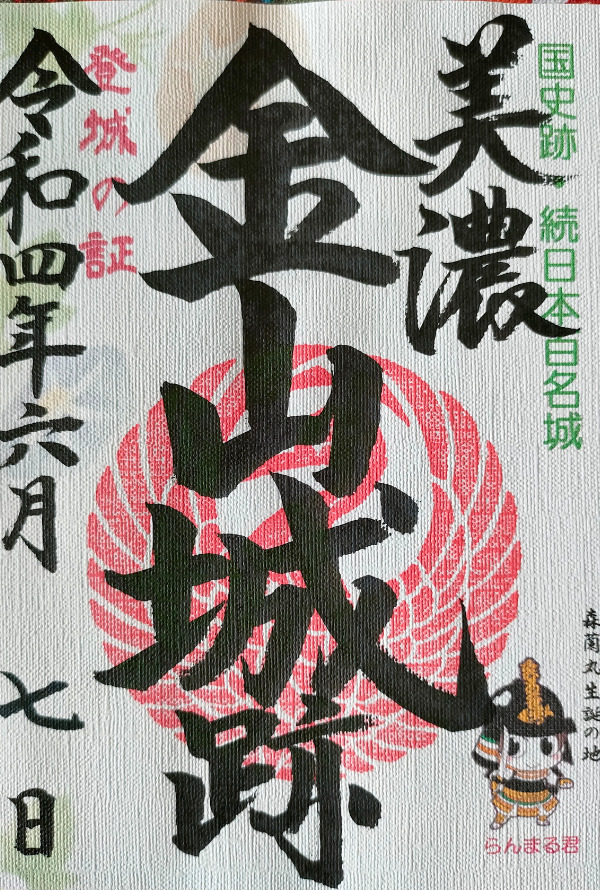 国史跡・続日本百名城
美濃
金山城跡
登城の証
令和四年六月七日
森蘭丸生誕の地
らんまる君